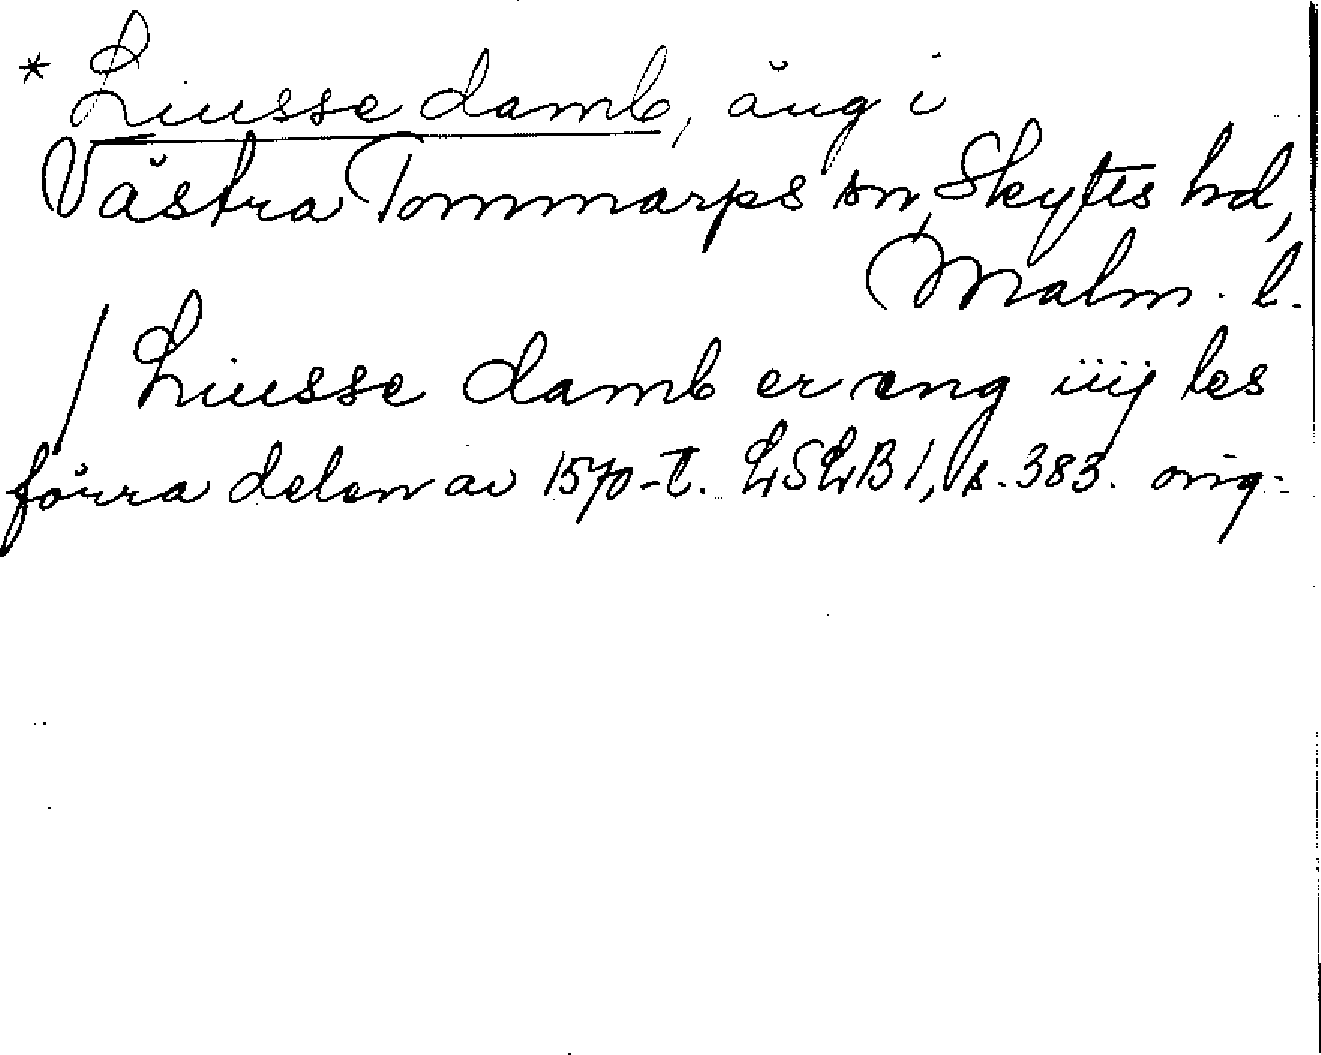 * Liusse damb, äng i
Västra Tommarps sn, Skytts hd,
Malm. l.
/ Liusse damb er æng iiij les
förra delen av 1570-t. LSLB 1, s. 383. orig.